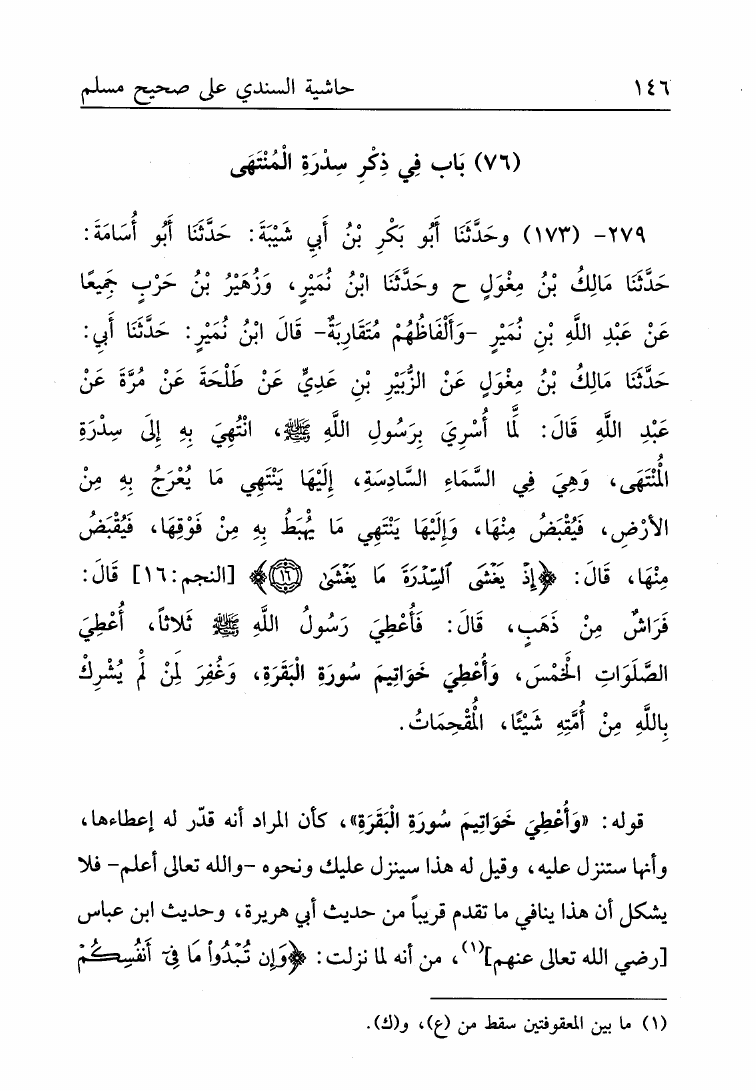 ١٤٦ حاشية السندي على صحيح مسلم
(٧٦) بَاب فِي ذِكْرِ سِدْرَةِ الْمُنْتَهَى
٢٧٩- (١٧٣) وحَدَّثَنَا أَبُو بَكْرِ بْنُ أَبِي شَيْبَةَ: حَدَّثَنَا أَبُو أُسَامَةَ:
حَدَّثَنَا مَالِكُ بْنُ مِغْوَلٍ ح وحَدَّثَنَا ابْنُ نُمَيْرٍ، وَزُهَيْرُ بْنُ حَرْبٍ جَمِيعًا
عَنْ عَبْدِ اللَّهِ بْنِ نُمَيْرٍ -وَأَلْفَاظُهُمْ مُتَقَارِبَةٌ- قَالَ ابْنُ نُمَيْرٍ: حَدَّثَنَا أَبِي:
حَدَّثَنَا مَالِكُ بْنُ مِغْوَلٍ عَنْ الزُّبَيْرِ بْنِ عَدِيٍّ عَنْ طَلْحَةَ عَنْ مُرَّةَ عَنْ
عَبْدِ اللَّهِ قَالَ: لَمَّا أُسْرِيَ بِرَسُولِ اللَّهِ ﷺ، انْتُهِيَ بِهِ إِلَى سِدْرَةِ
الْمُنْتَهَى، وَهِيَ فِي السَّمَاءِ السَّادِسَةِ، إِلَيْهَا يَنْتَهِي مَا يُعْرَجُ بِهِ مِنْ
الأَرْضِ، فَيُقْبَضُ مِنْهَا، وَإِلَيْهَا يَنْتَهِي مَا يُهْبَطُ بِهِ مِنْ فَوْقِهَا، فَيُقْبَضُ
مِنْهَا، قَالَ: ﴿إِذْ يَغْشَى ٱلسِّدْرَةَ مَا يَغْشَىٰ ١٦﴾ [النجم:١٦] قَالَ:
فَرَاشٌ مِنْ ذَهَبٍ، قَالَ: فَأُعْطِيَ رَسُولُ اللَّهِ ﷺ ثَلاثاً، أُعْطِيَ
الصَّلَوَاتِ الْخَمْسَ، وَأُعْطِيَ خَوَاتِيمَ سُورَةِ الْبَقَرَةِ، وَغُفِرَ لِمَنْ لَمْ يُشْرِكْ
بِاللَّهِ مِنْ أُمَّتِهِ شَيْئًا، الْمُقْحِمَاتُ.
قوله: «وَأُعْطِيَ خَوَاتِيمَ سُورَةِ الْبَقَرَةِ»، كأن المراد أنه قدّر له إعطاءها،
وأنها ستنزل عليه، وقيل له هذا سينزل عليك ونحوه -والله تعالى أعلم- فلا
يشكل أن هذا ينافي ما تقدم قريباً من حديث أبي هريرة، وحديث ابن عباس
[رضي الله تعالى عنهم](١)، من أنه لما نزلت: ﴿وَإِن تُبْدُواْ مَا فِىٓ أَنفُسِكُمْ
(١) ما بين المعقوفتين سقط من (ع)، و(ك).